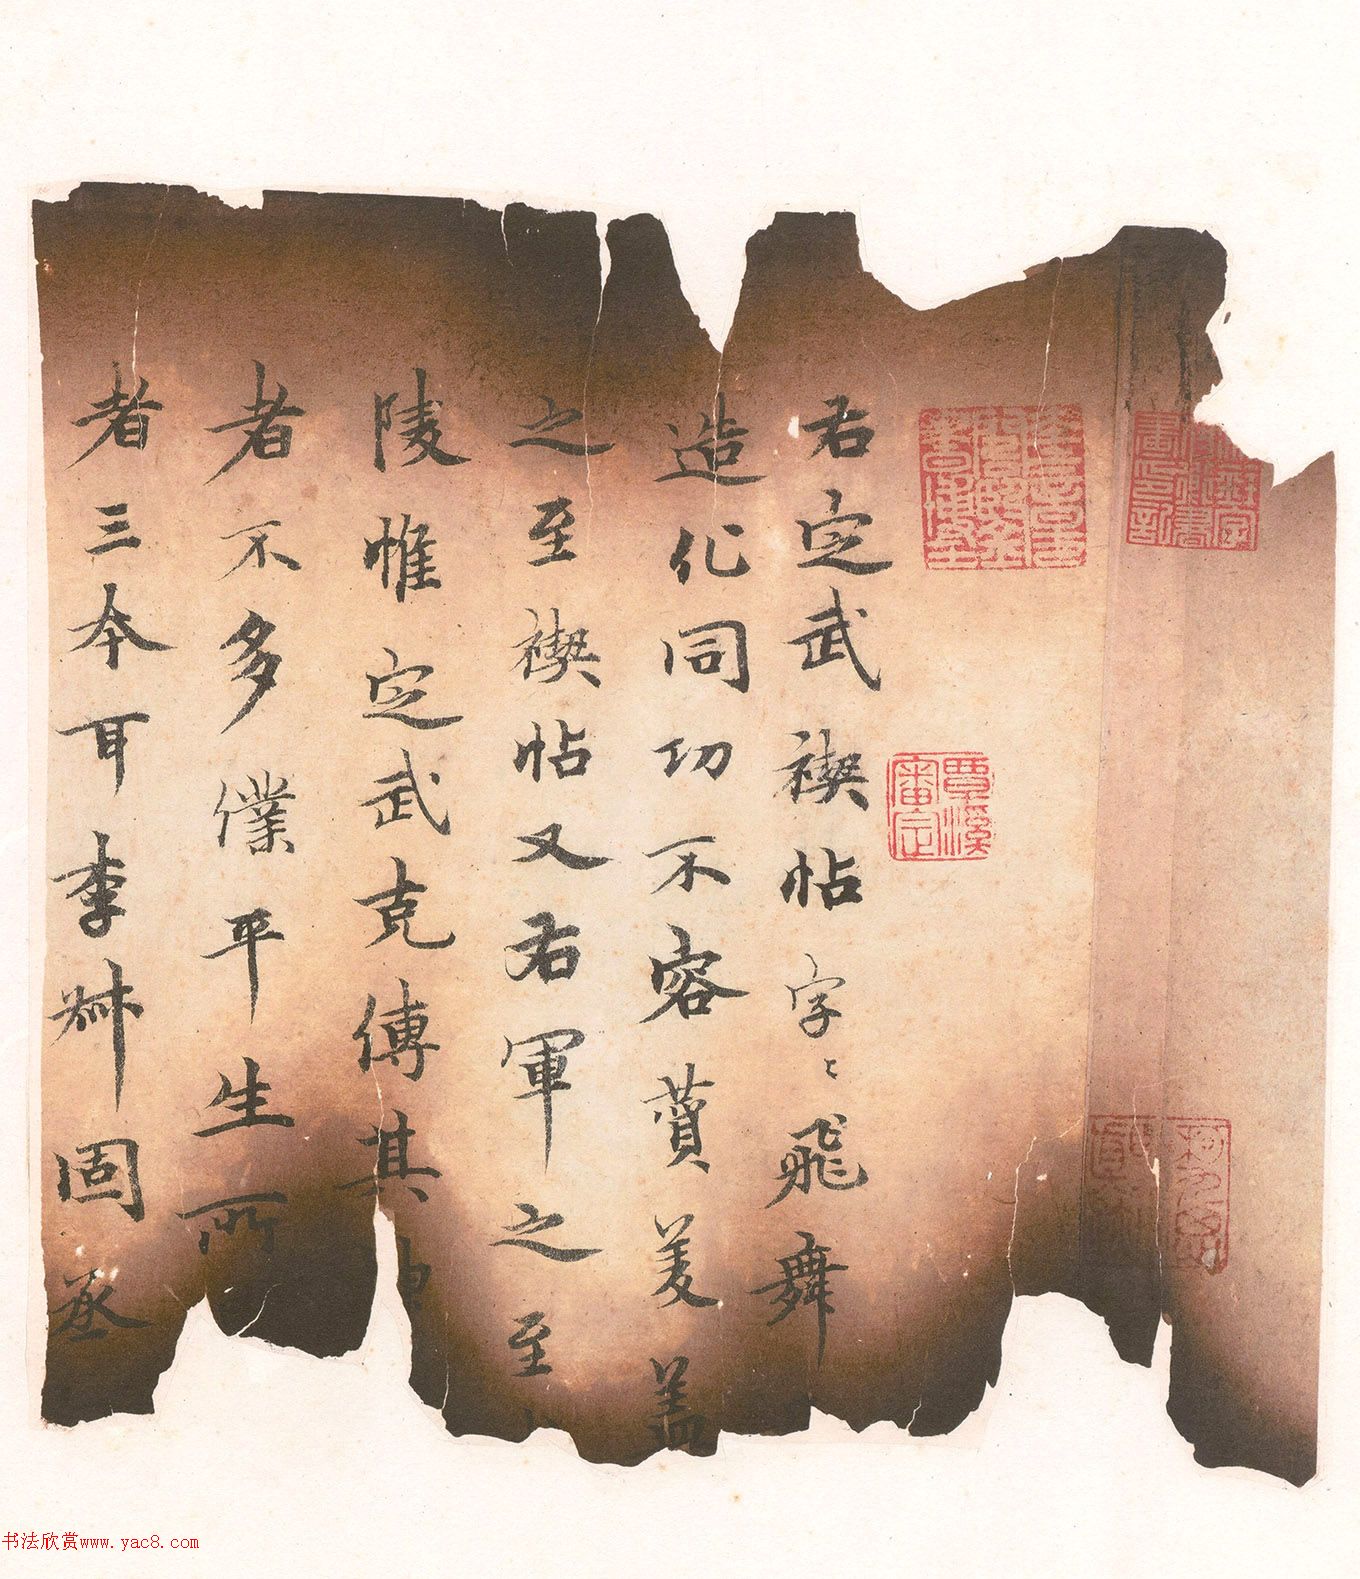 右定武禊帖字〻飛舞
造化同功不容賛美蓋
之至禊帖又右軍之至
陵惟定武克傳其神
者不多僕平生所
者三本耳李叔固丞
覃溪
審定
书法欣赏www.yac8.com